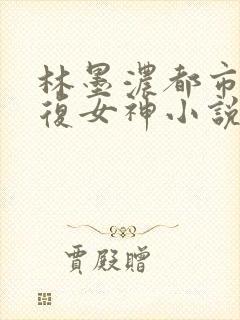 林墨濃都市
復女神小説
賈殿贈